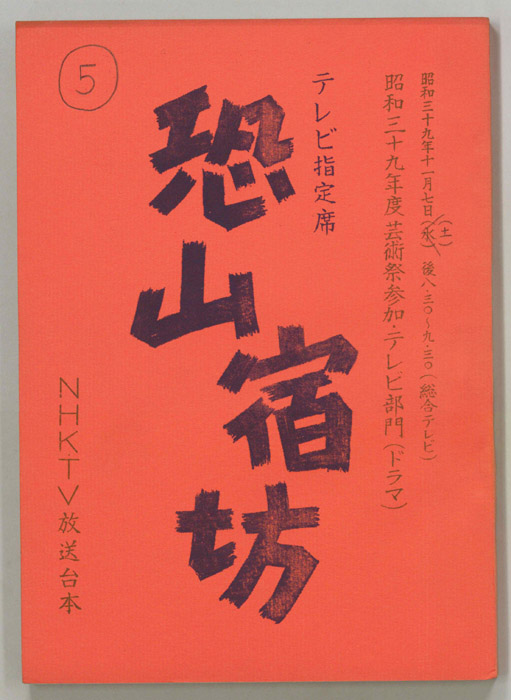 昭和三十九年十一月七日(水)(土) 後八・三〇～九・三〇(総合テレビ)
昭和三十九年度芸術祭参加・テレビ部門(ドラマ)
テレビ指定席
恐山宿坊
5
NHKTV放送台本